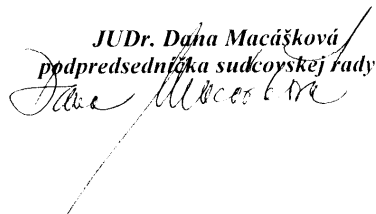 JUDr. Dana Macášková
podpredsednička sudcovskej rady
Dana Macášková